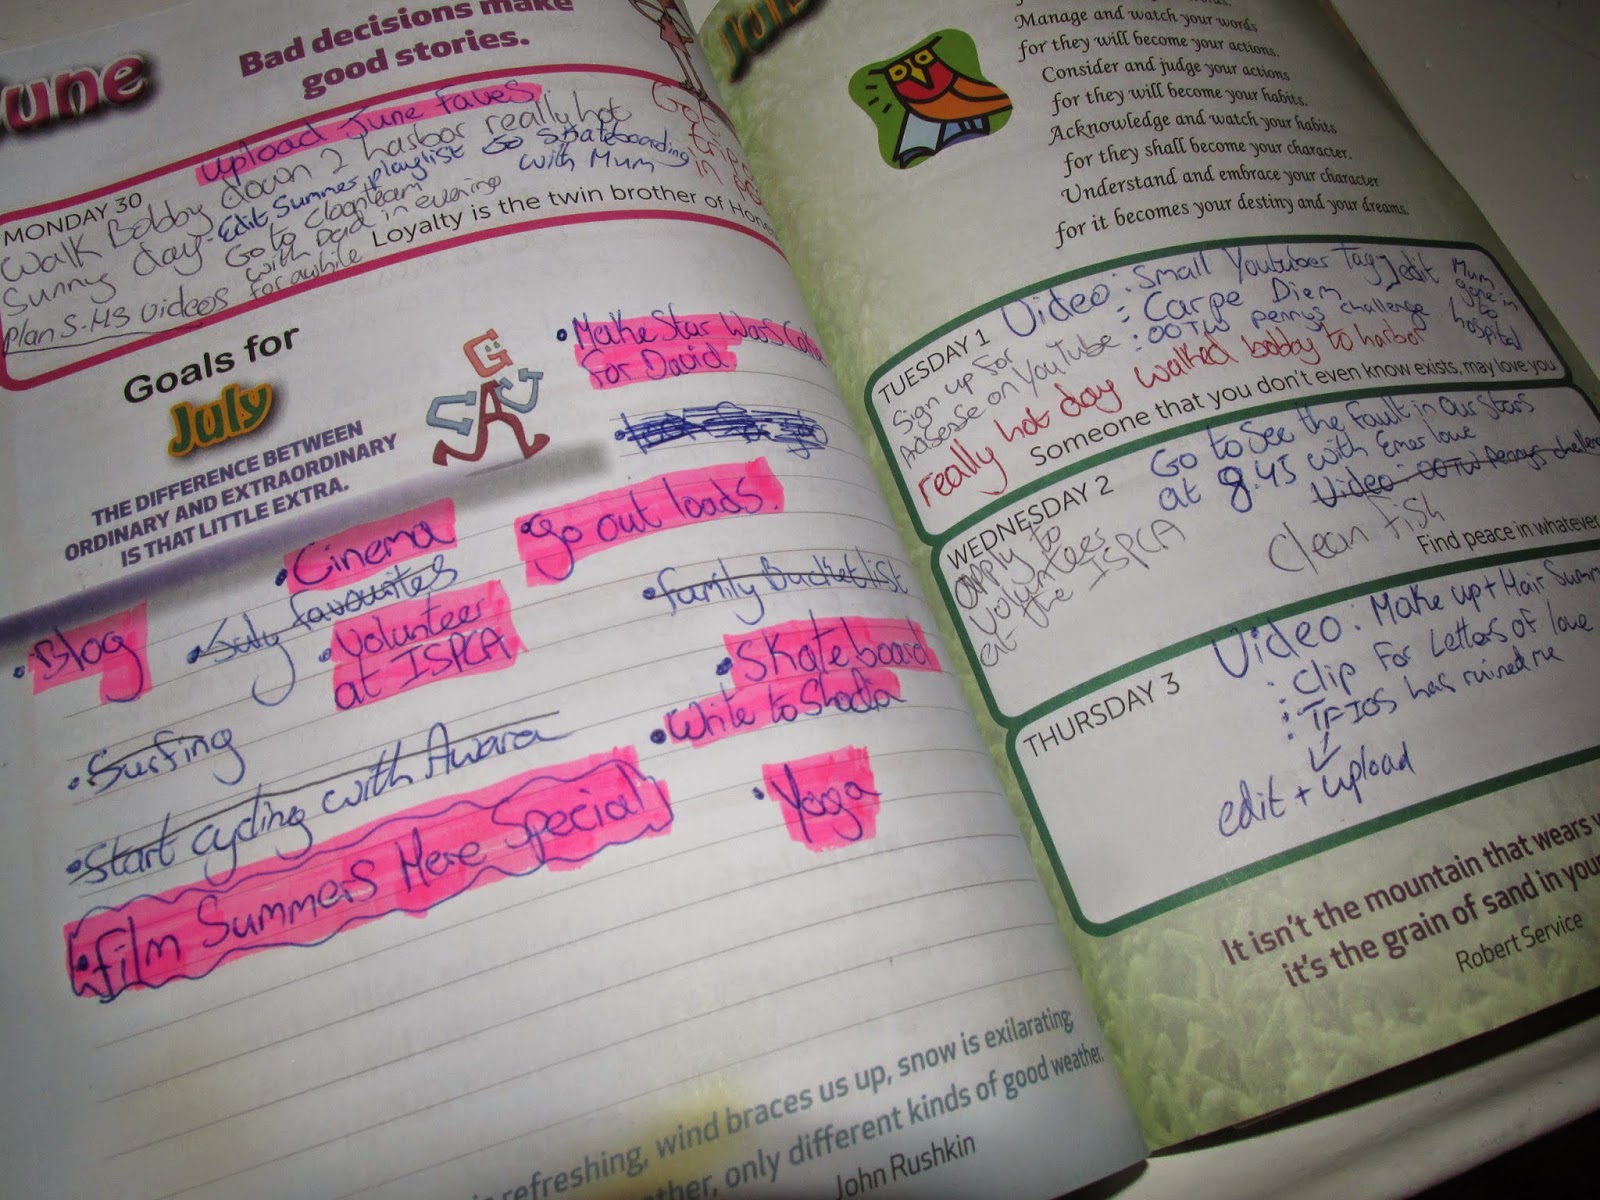 June
Bad decisions make
good stories.
upload June faves
MONDAY 30
Walk Bobby down 2 harbor really hot
Sunny day. Edit Summer playlist Go Skateboarding
with Mum
Go to
with Dad in evening
Plan S.HS videos for awhile
Got
in
Loyalty is the twin brother of
Goals for
July
THE DIFFERENCE BETWEEN
ORDINARY AND EXTRAORDINARY
IS THAT LITTLE EXTRA.
GOALS
• Make Star Wars
for David
• Cinema
• Go out loads.
• July favourites
• family Bucket list
• Blog
• Volunteer
at ISPCA
• Skateboard
• Write to Shadia
• Surfing
• Start cycling with Awara
• Yoga
• film Summers Here Special
refreshing, wind braces us up, snow is exilarating;
only different kinds of good weather.
John Rushkin
July
Manage and watch your words
for they will become your actions.
Consider and judge your actions
for they will become your habits.
Acknowledge and watch your habits
for they shall become your character.
Understand and embrace your character
for it becomes your destiny and your dreams.
TUESDAY 1
Video: Small Youtuber Tag] edit
: Carpe Diem
: OOTW pennys challenge
Mum
gone in
to
hospital
Sign up for
Adsense on YouTube
really hot day walked bobby to harbor
Someone that you don't even know exists, may love you
WEDNESDAY 2
Go to See the Fault in Our Stars
at 8.45 with Emer love
Video: OOTW Pennys
apply to
volunteer
at the ISPCA
Clean fish
Find peace in whatever
THURSDAY 3
Video: Make up + Hair
: Clip For Letters of love
: TFIOS has ruined me
edit + upload
It isn't the mountain that wears
it's the grain of sand in your
Robert Service